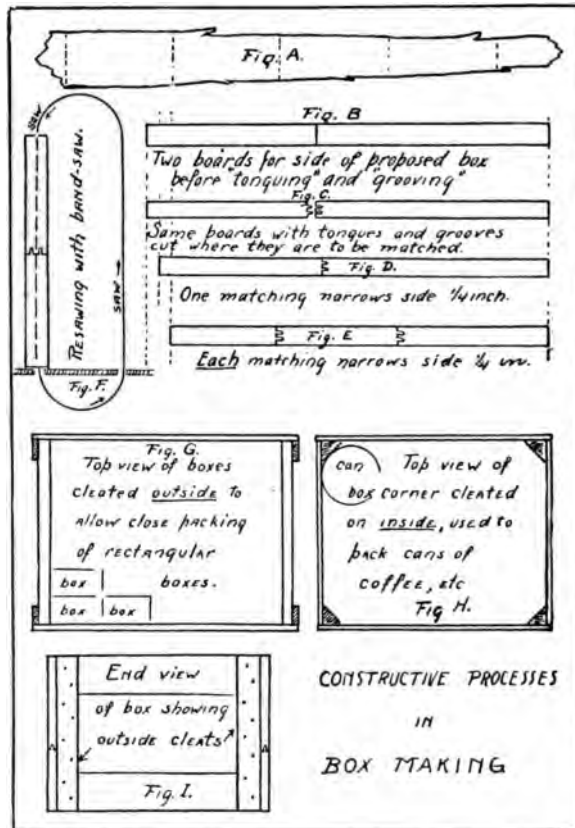 Fig. A.
SAW
RESAWING WITH BAND-SAW.
SAW
Fig. F.
Fig B
Two boards for side of proposed box
before "tonguing" and "grooving"
Fig. C.
Same boards with tongues and grooves
cut where they are to be matched.
Fig D.
One matching narrows side 1/4 inch.
Fig. E
Each matching narrows side 1/4 in.
Fig. G.
Top view of boxes
cleated outside to
allow close packing
of rectangular
box boxes.
box box
can Top view of
box corner cleated
on inside, used to
pack cans of
coffee, etc
Fig H.
End view
of box showing
outside cleats
Fig. I.
CONSTRUCTIVE PROCESSES
IN
BOX MAKING